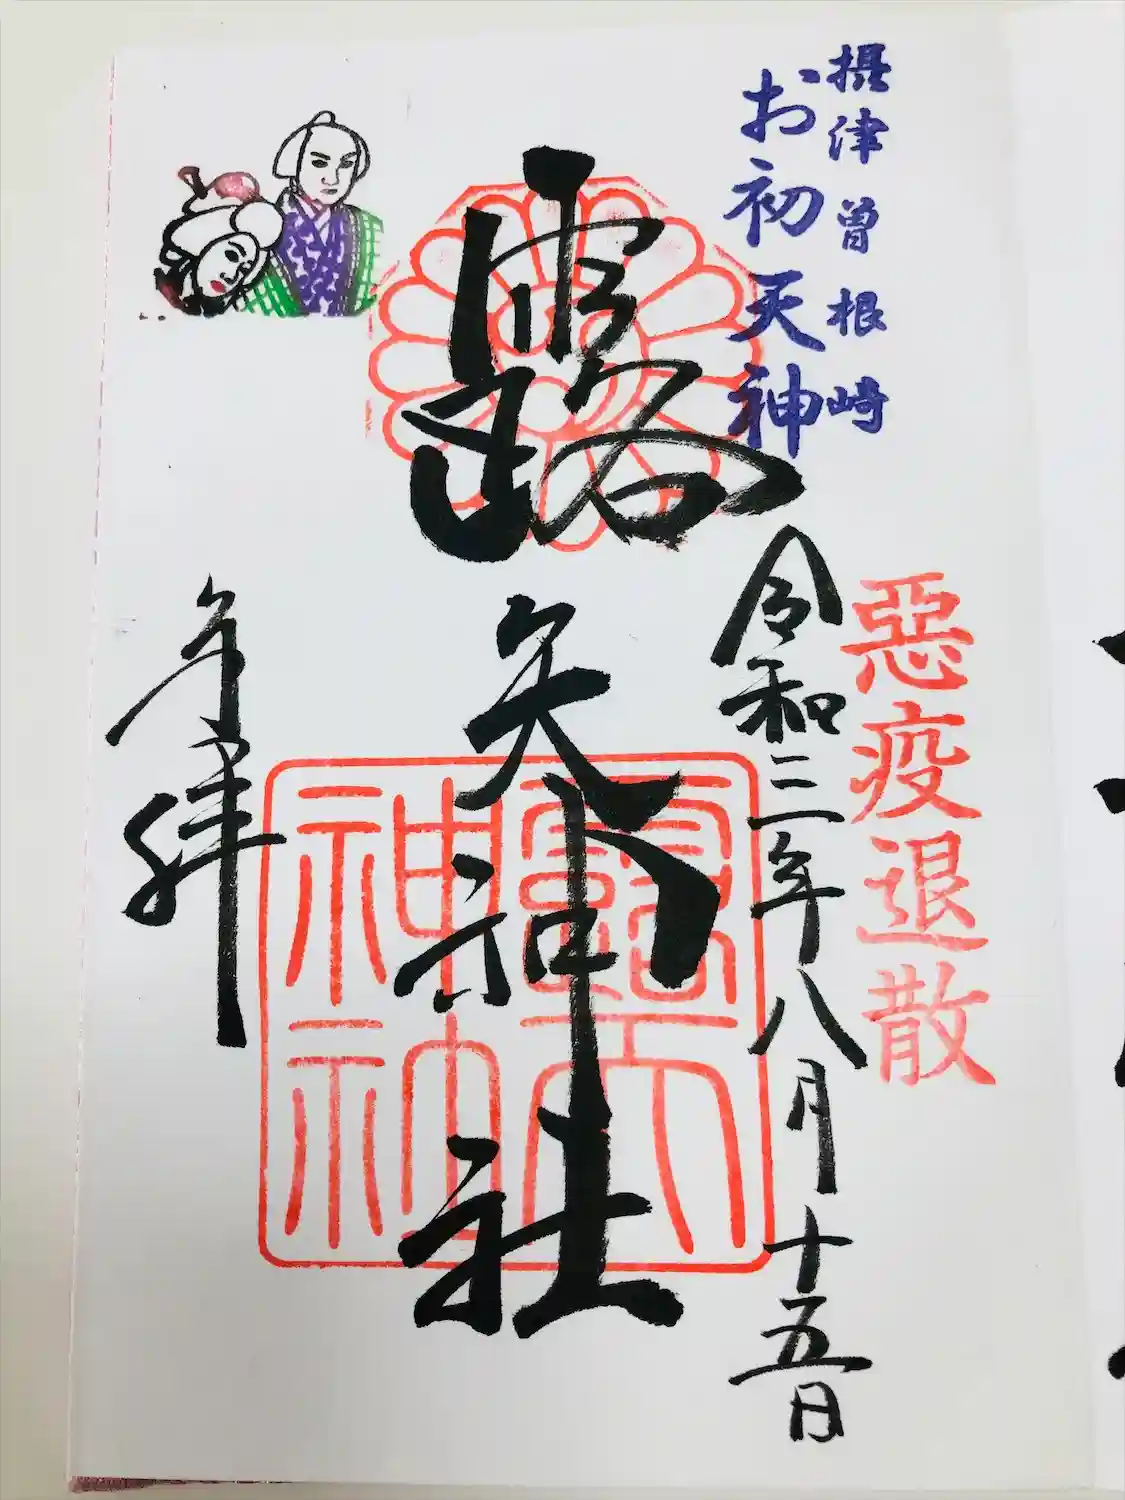 摂津曽根崎
お初天神
惡疫退散
令和三年八月十五日
露天神社
奉拝
露天
神社